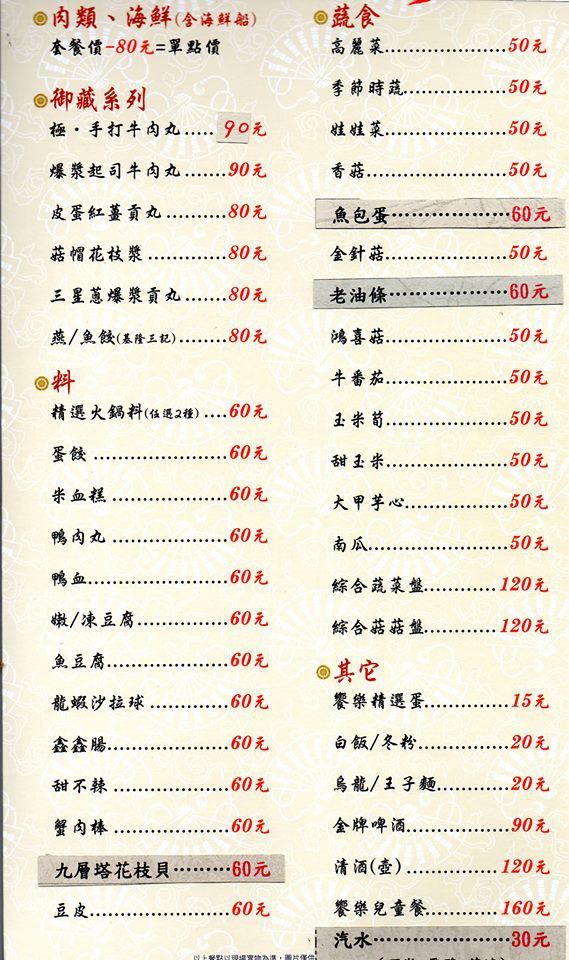 肉類、海鮮(含海鮮船)
套餐價-80元=單點價
御藏系列
極·手打牛肉丸.....90元
爆漿起司牛肉丸.......90元
皮蛋紅薑貢丸........80元
菇帽花枝漿..........80元
三星蔥爆漿貢丸.......80元
燕/魚餃(基隆三記)........80元
料
精選火鍋料(任選2種)....60元
蛋餃.................60元
米血糕..............60元
鴨肉丸..............60元
鴨血.................60元
嫩/凍豆腐...........60元
魚豆腐...............60元
龍蝦沙拉球..........60元
鑫鑫腸...............60元
甜不辣..............60元
蟹肉棒..............60元
九層塔花枝貝·········60元
豆皮.................60元
蔬食
高麗菜...............50元
季節時蔬.............50元
娃娃菜...............50元
香菇.................50元
魚包蛋··················60元
金針菇...............50元
老油條··················60元
鴻喜菇...............50元
牛番茄...............50元
玉米筍...............50元
甜玉米...............50元
大甲芋心.............50元
南瓜.................50元
綜合蔬菜盤..........120元
綜合菇菇盤..........120元
其它
饗樂精選蛋...........15元
白飯/冬粉............20元
烏龍/王子麵..........20元
金牌啤酒.............90元
清酒(壺)............120元
饗樂兒童餐..........160元
汽水····················30元
以上餐點以現場實物為準，圖片僅供